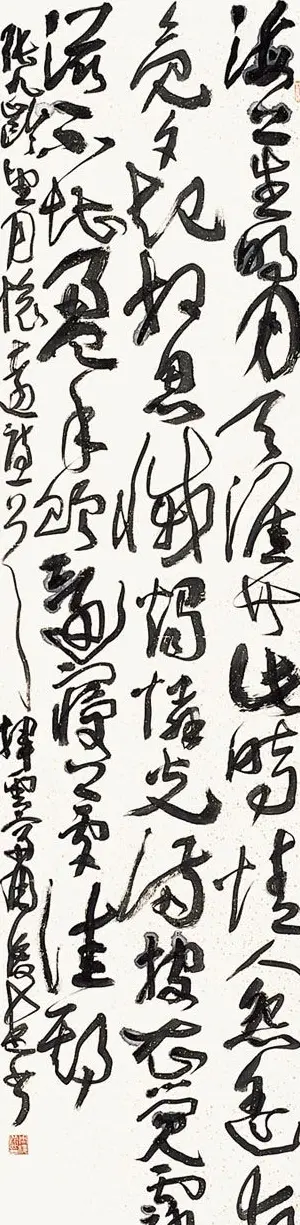 海上生明月天涯共此時情人怨遙夜
竟夕起相思滅燭憐光滿披衣覺露
滋不堪盈手贈還寢夢佳期
張九齡望月懷遠